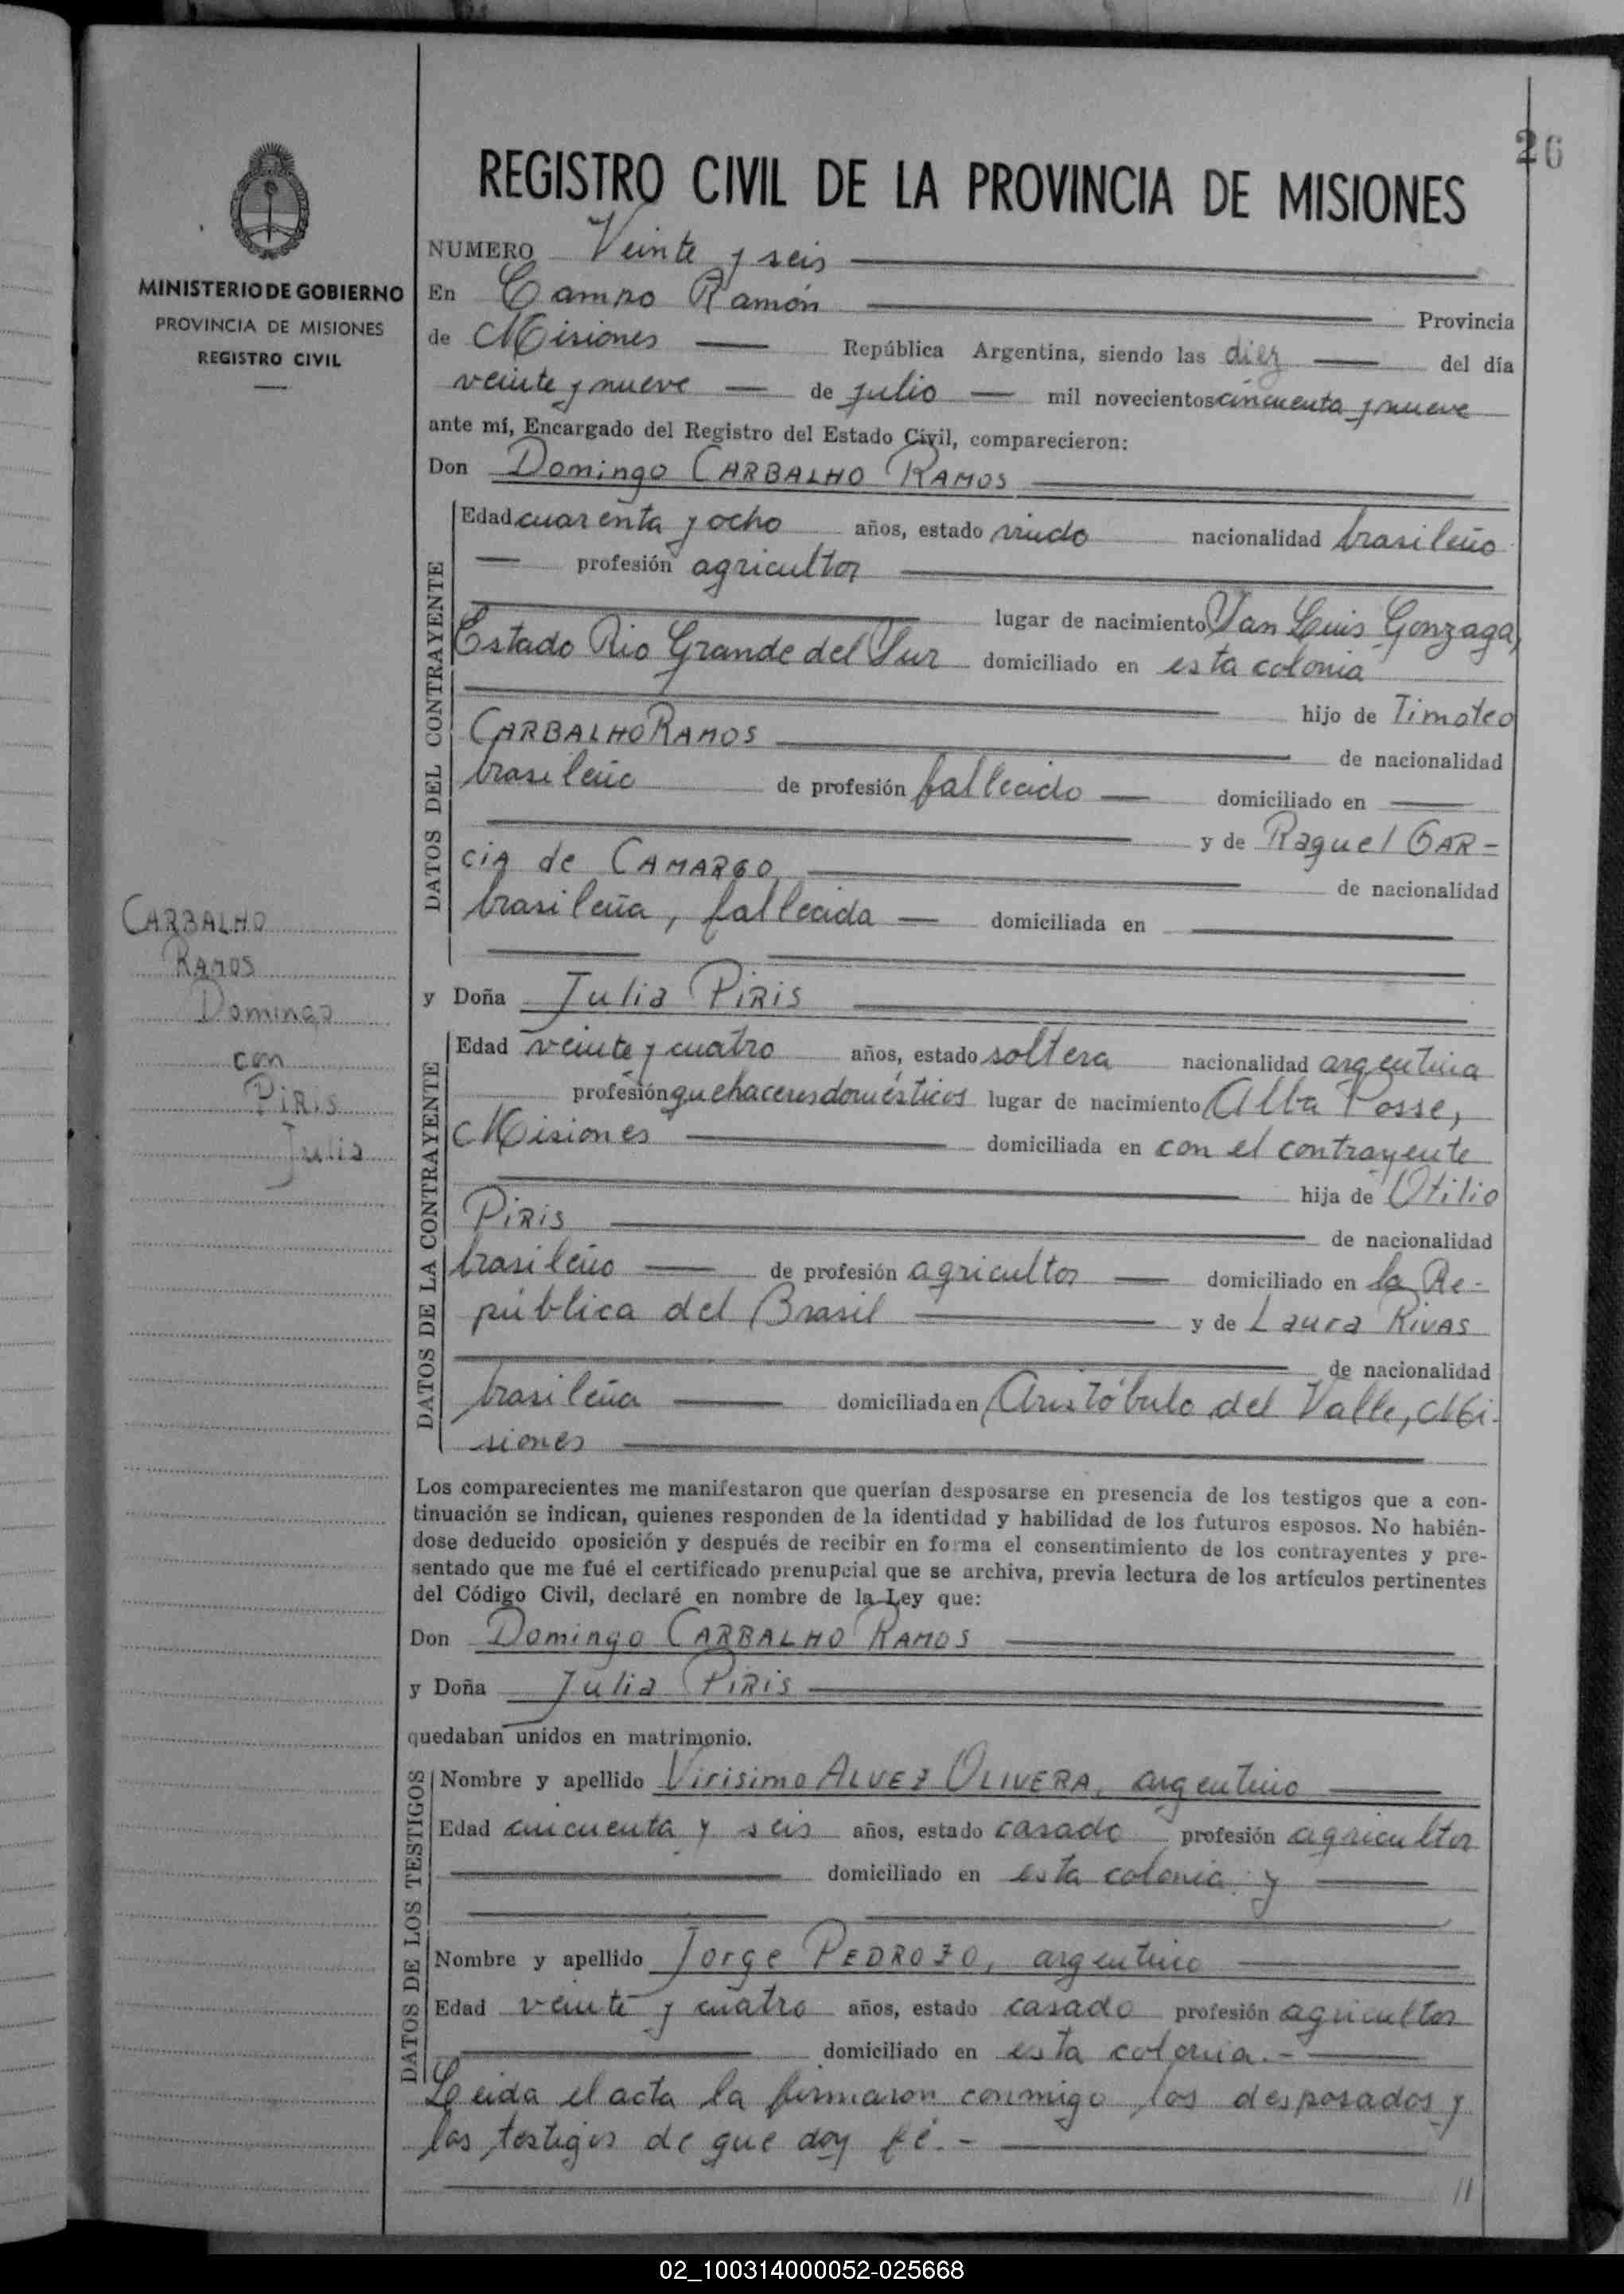 26
REGISTRO CIVIL DE LA PROVINCIA DE MISIONES
MINISTERIO DE GOBIERNO
PROVINCIA DE MISIONES
REGISTRO CIVIL
NUMERO Veinte y seis
En Campo Ramón Provincia
de Misiones República Argentina, siendo las diez del día
veinte y nueve de julio mil novecientos cincuenta y nueve
ante mí, Encargado del Registro del Estado Civil, comparecieron:
Don Domingo CARBALHO RAMOS
DATOS DEL CONTRAYENTE
Edad cuarenta y ocho años, estado viudo nacionalidad brasileño
profesión agricultor
lugar de nacimiento San Luis Gonzaga,
Estado Rio Grande del Sur domiciliado en esta colonia
hijo de Timoteo
CARBALHO RAMOS de nacionalidad
brasileño de profesión fallecido domiciliado en
y de Raquel GAR-
CIA de CAMARGO de nacionalidad
brasileña, fallecida domiciliada en
CARBALHO
RAMOS
Domingo
con
PIRIS
Julia
y Doña Julia PIRIS
DATOS DE LA CONTRAYENTE
Edad veinte y cuatro años, estado soltera nacionalidad argentina
profesión quehaceres domésticos lugar de nacimiento Alba Posse,
Misiones domiciliada en con el contrayente
hija de Otilio
PIRIS de nacionalidad
brasileño de profesión agricultor domiciliado en la Re-
pública del Brasil y de Laura RIVAS
de nacionalidad
brasileña domiciliada en Aristóbulo del Valle, Mi-
siones
Los comparecientes me manifestaron que querían desposarse en presencia de los testigos que a con-
tinuación se indican, quienes responden de la identidad y habilidad de los futuros esposos. No habién-
dose deducido oposición y después de recibir en forma el consentimiento de los contrayentes y pre-
sentado que me fué el certificado prenupcial que se archiva, previa lectura de los artículos pertinentes
del Código Civil, declaré en nombre de la Ley que:
Don Domingo CARBALHO RAMOS
y Doña Julia PIRIS
quedaban unidos en matrimonio.
DATOS DE LOS TESTIGOS
Nombre y apellido Virisimo ALVEZ OLIVERA, argentino
Edad cincuenta y seis años, estado casado profesión agricultor
domiciliado en esta colonia y
Nombre y apellido Jorge PEDROZO, argentino
Edad veinte y cuatro años, estado casado profesión agricultor
domiciliado en esta colonia.-
Leida el acta la firmaron conmigo los desposados y
los testigos de que doy fé.-
//
02_100314000052-025668